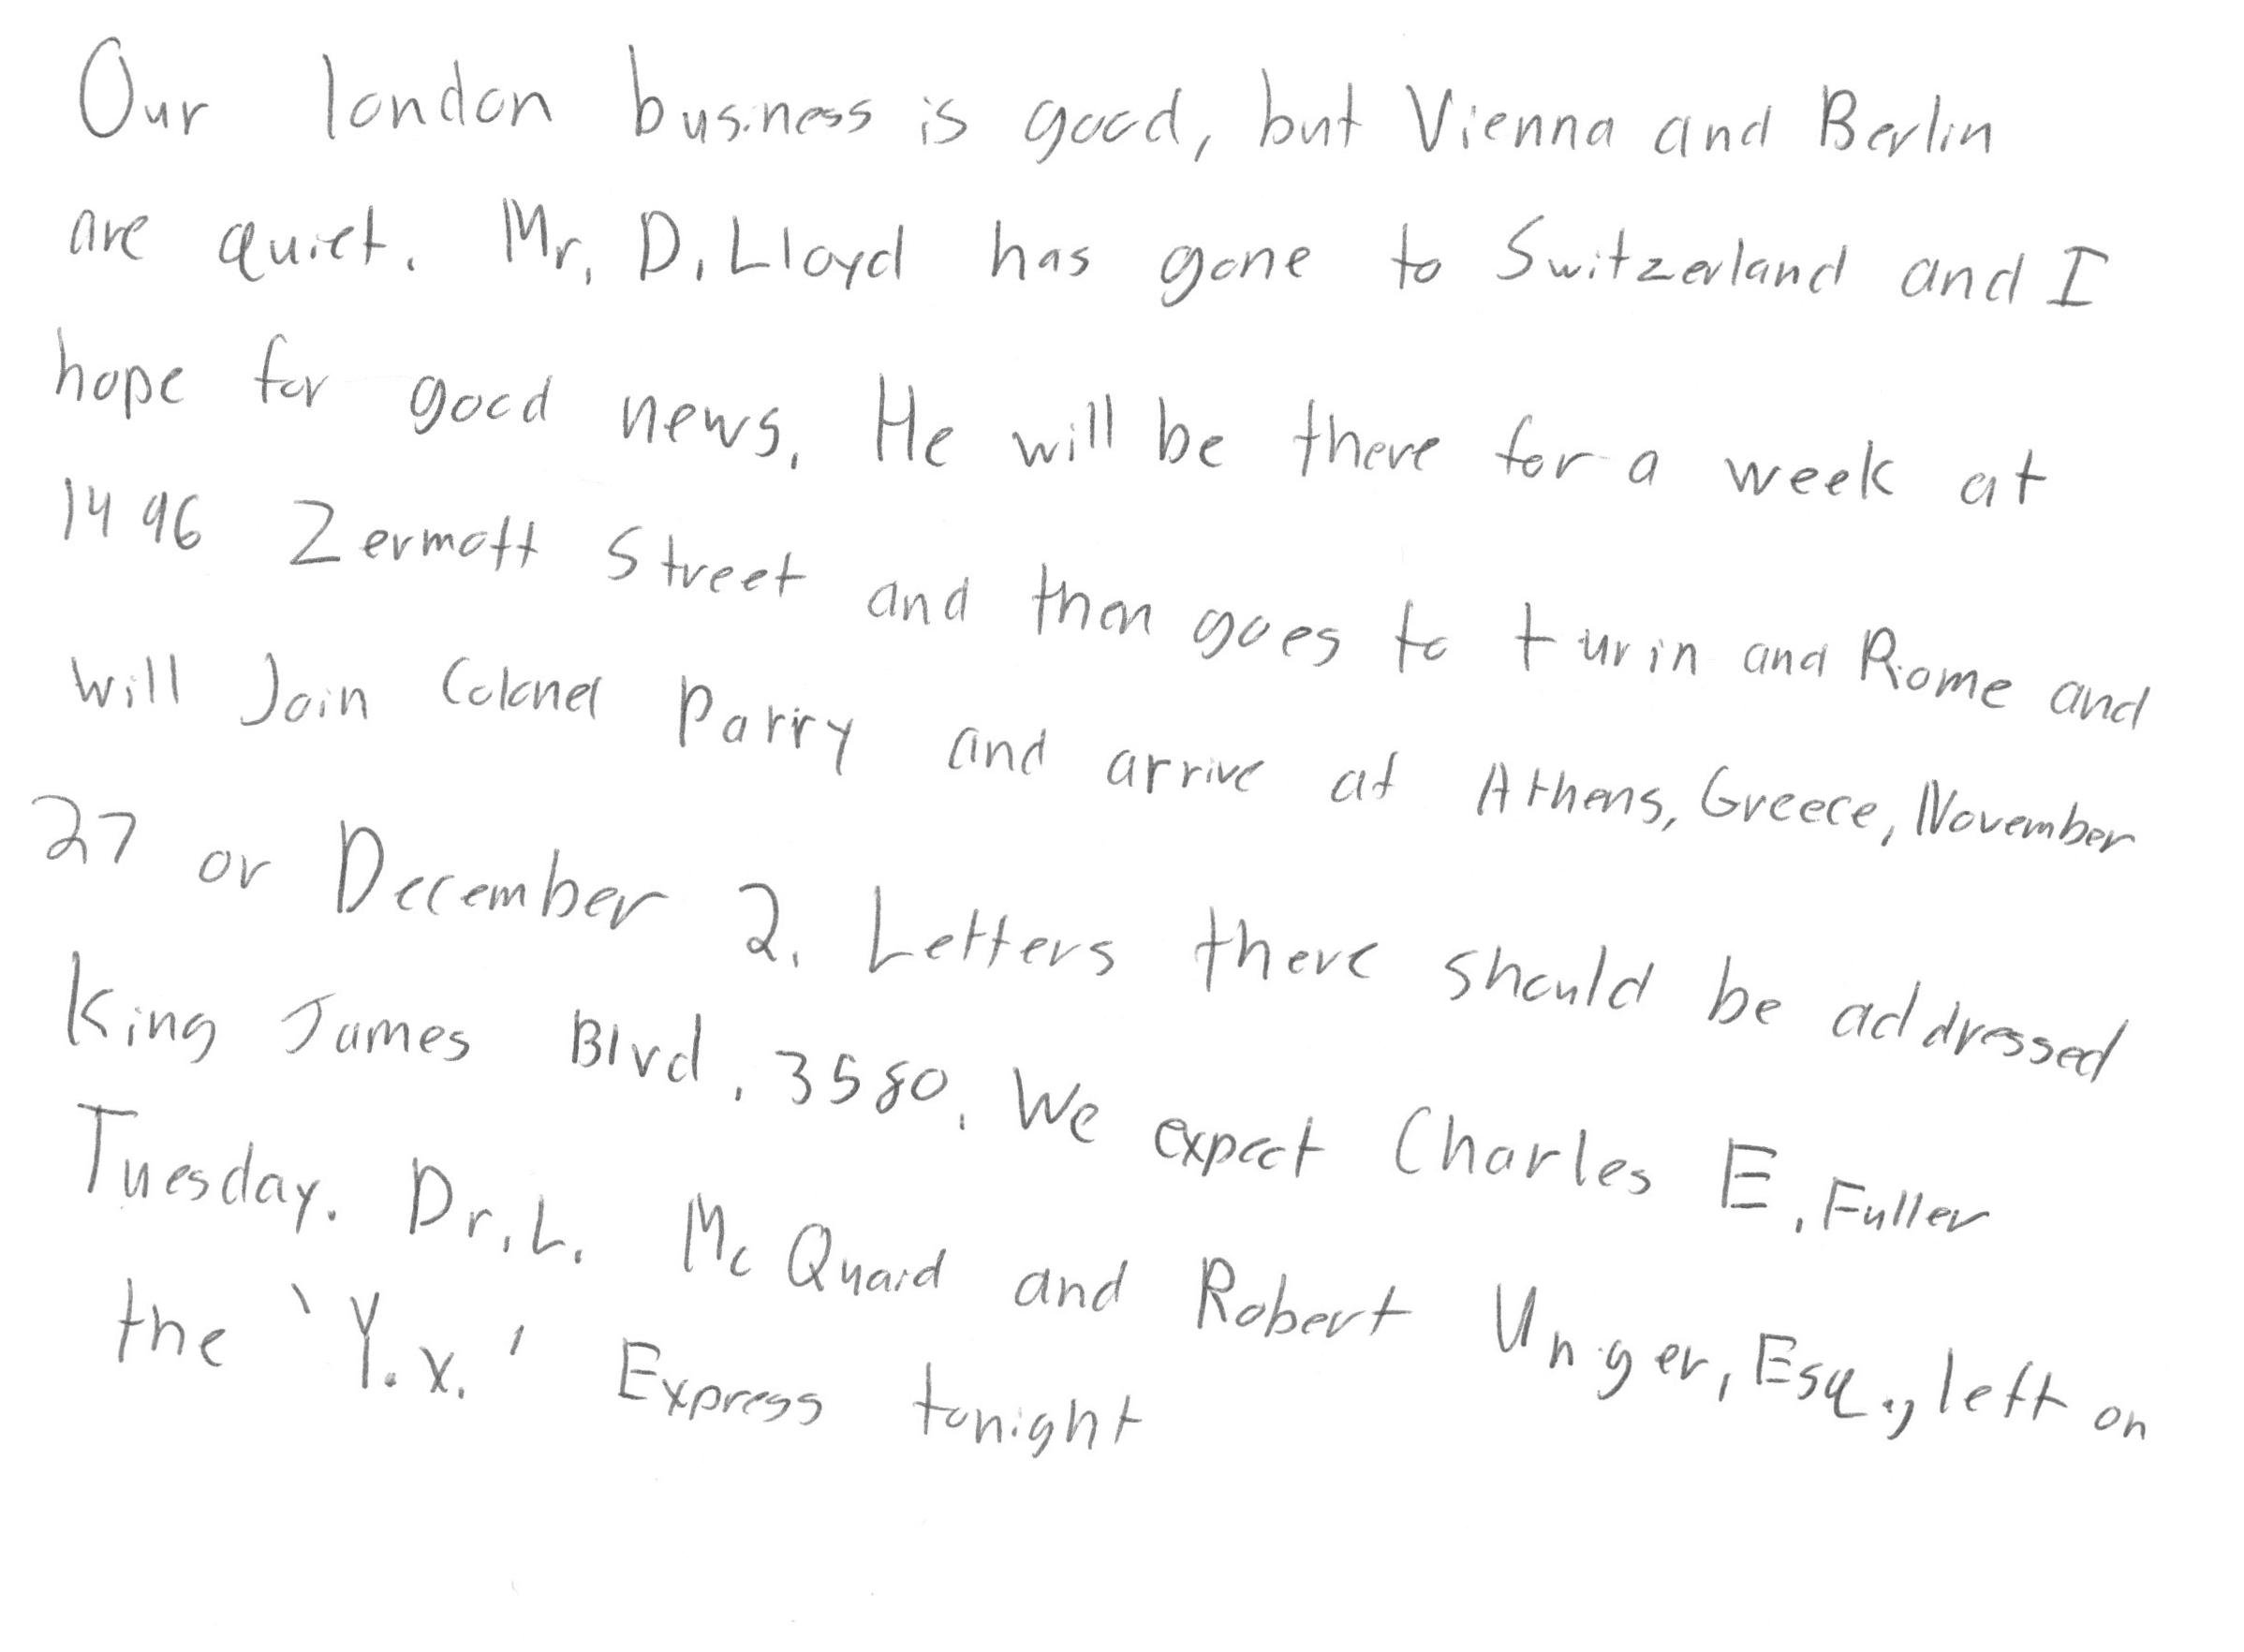 Our london business is good, but Vienna and Berlin
are quiet. Mr. D. Lloyd has gone to Switzerland and I
hope for good news. He will be there for a week at
1496 Zermott Street and then goes to turin and Rome and
will Join Colonel Parry and arrive at Athens, Greece, November
27 or December 2. Letters there should be addressed
King James Blvd. 3580. We expect Charles E. Fuller
Tuesday. Dr. L. Mc Quaid and Robert Unger, Esq., left on
the 'Y.x.' Express tonight